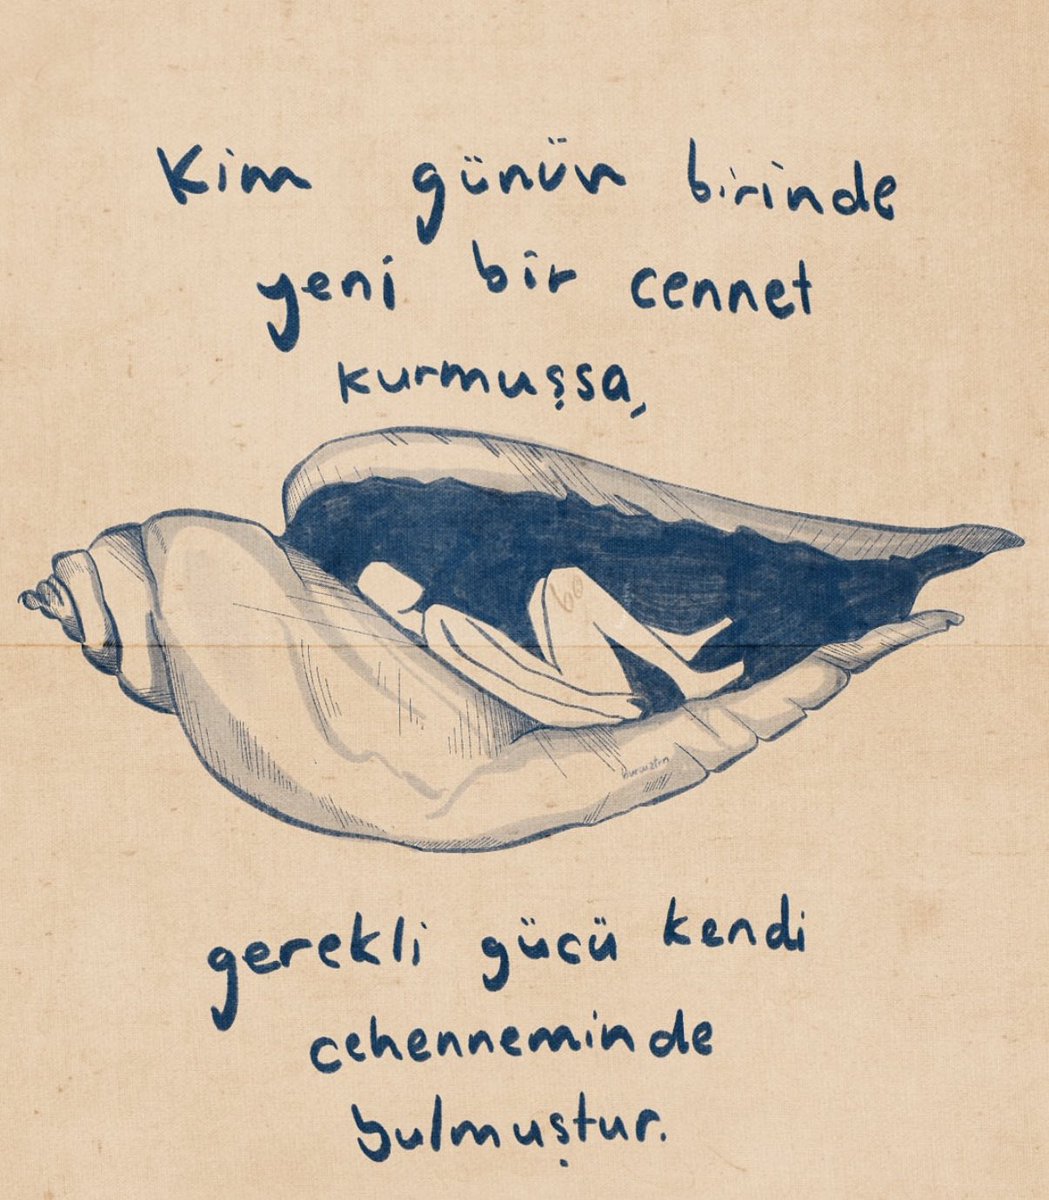 Kim günün birinde
yeni bir cennet
kurmuşsa,
gerekli gücü kendi
cehenneminde
bulmuştur.